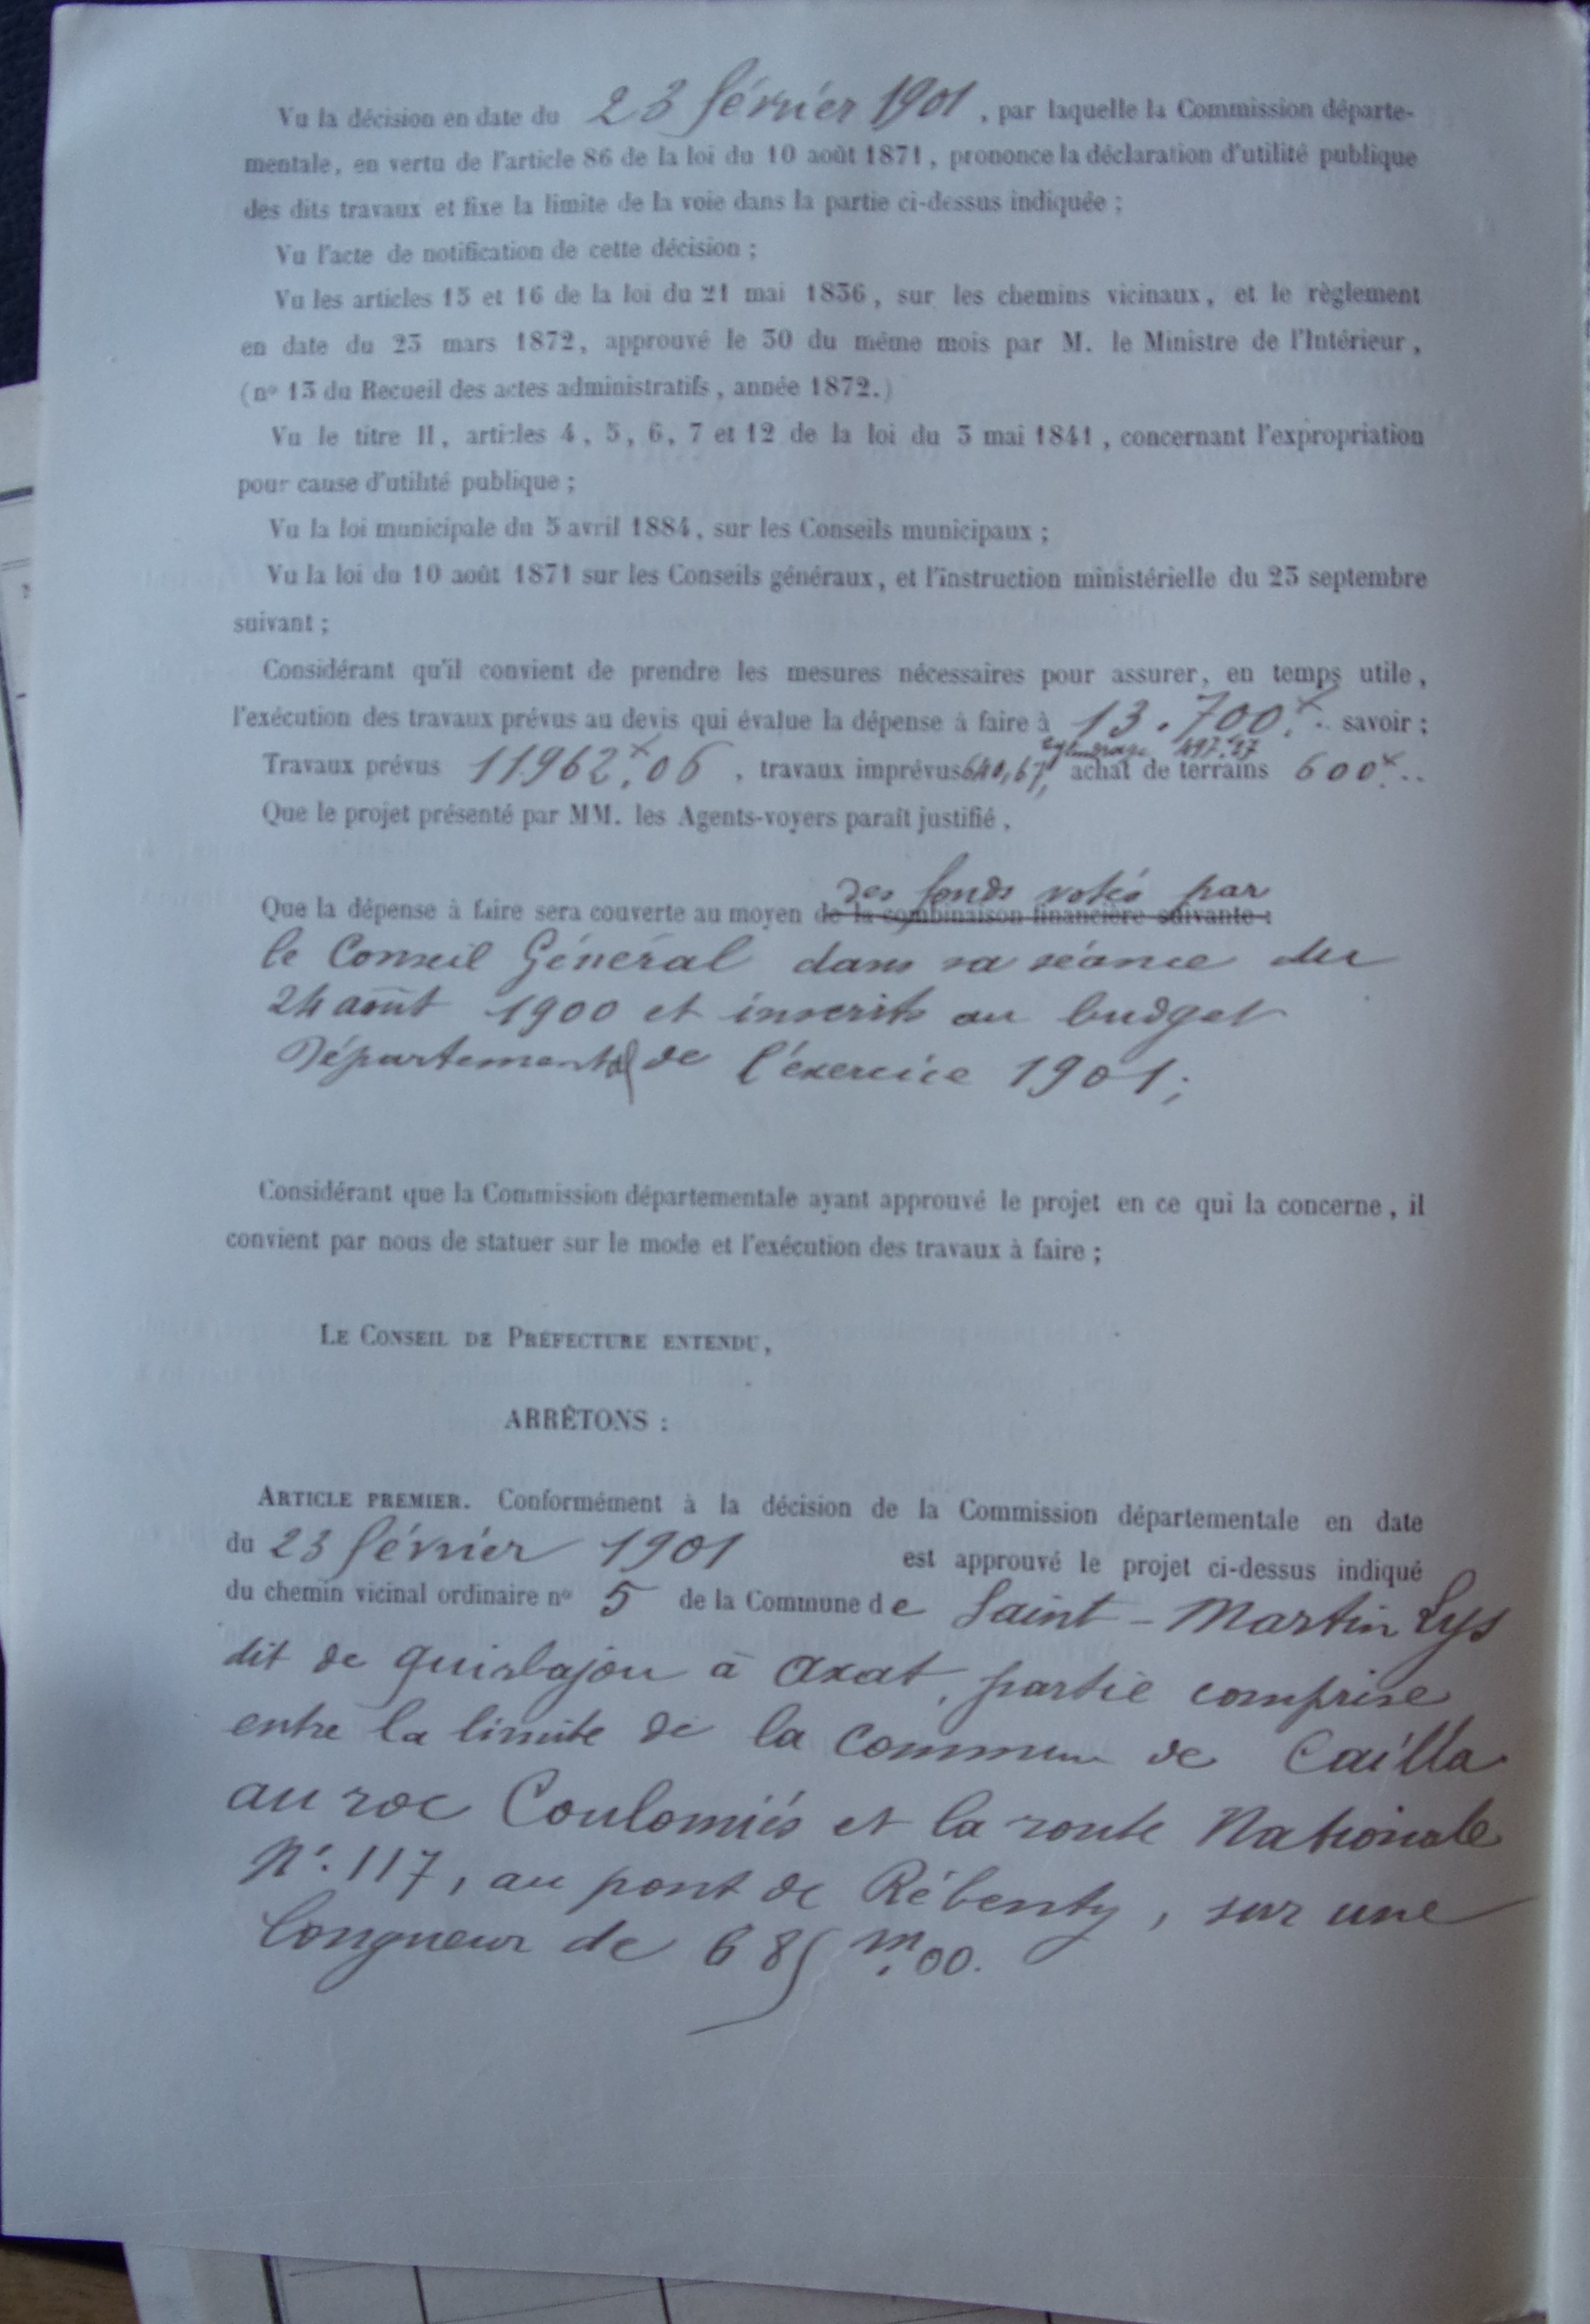 Vu la décision en date du 23 février 1901, par laquelle la Commission départe-
mentale, en vertu de l'article 86 de la loi du 10 août 1871, prononce la déclaration d'utilité publique
des dits travaux et fixe la limite de la voie dans la partie ci-dessus indiquée ;
Vu l'acte de notification de cette décision ;
Vu les articles 15 et 16 de la loi du 21 mai 1836, sur les chemins vicinaux, et le règlement
en date du 23 mars 1872, approuvé le 30 du même mois par M. le Ministre de l'Intérieur,
(nº 13 du Recueil des actes administratifs, année 1872.)
Vu le titre II, articles 4, 5, 6, 7 et 12 de la loi du 3 mai 1841, concernant l'expropriation
pour cause d'utilité publique ;
Vu la loi municipale du 5 avril 1884, sur les Conseils municipaux ;
Vu la loi du 10 août 1871 sur les Conseils généraux, et l'instruction ministérielle du 23 septembre
suivant ;
Considérant qu'il convient de prendre les mesures nécessaires pour assurer, en temps utile,
l'exécution des travaux prévus au devis qui évalue la dépense à faire à 13.700f.. savoir :
cylindrage 497f27
Travaux prévus 11962f,06, travaux imprévus 640,67, achat de terrains 600f..
Que le projet présenté par MM. les Agents-voyers paraît justifié,
des fonds votés par
Que la dépense à faire sera couverte au moyen de la combinaison financière suivante :
le Conseil Général dans sa séance du
24 août 1900 et inscrits au budget
Départemental de l'exercice 1901;
Considérant que la Commission départementale ayant approuvé le projet en ce qui la concerne, il
convient par nous de statuer sur le mode et l'exécution des travaux à faire ;
LE CONSEIL DE PRÉFECTURE ENTENDU,
ARRÊTONS :
ARTICLE PREMIER. Conformément à la décision de la Commission départementale en date
du 23 février 1901 est approuvé le projet ci-dessus indiqué
du chemin vicinal ordinaire nº 5 de la Commune de Saint-Martin Lys
dit de quirbajou à Axat, partie comprise
entre la limite de la Commune de Caïlla
au roc Coulomiés et la route Nationale
Nº. 117, au pont de Rébenty, sur une
longueur de 685m,00.